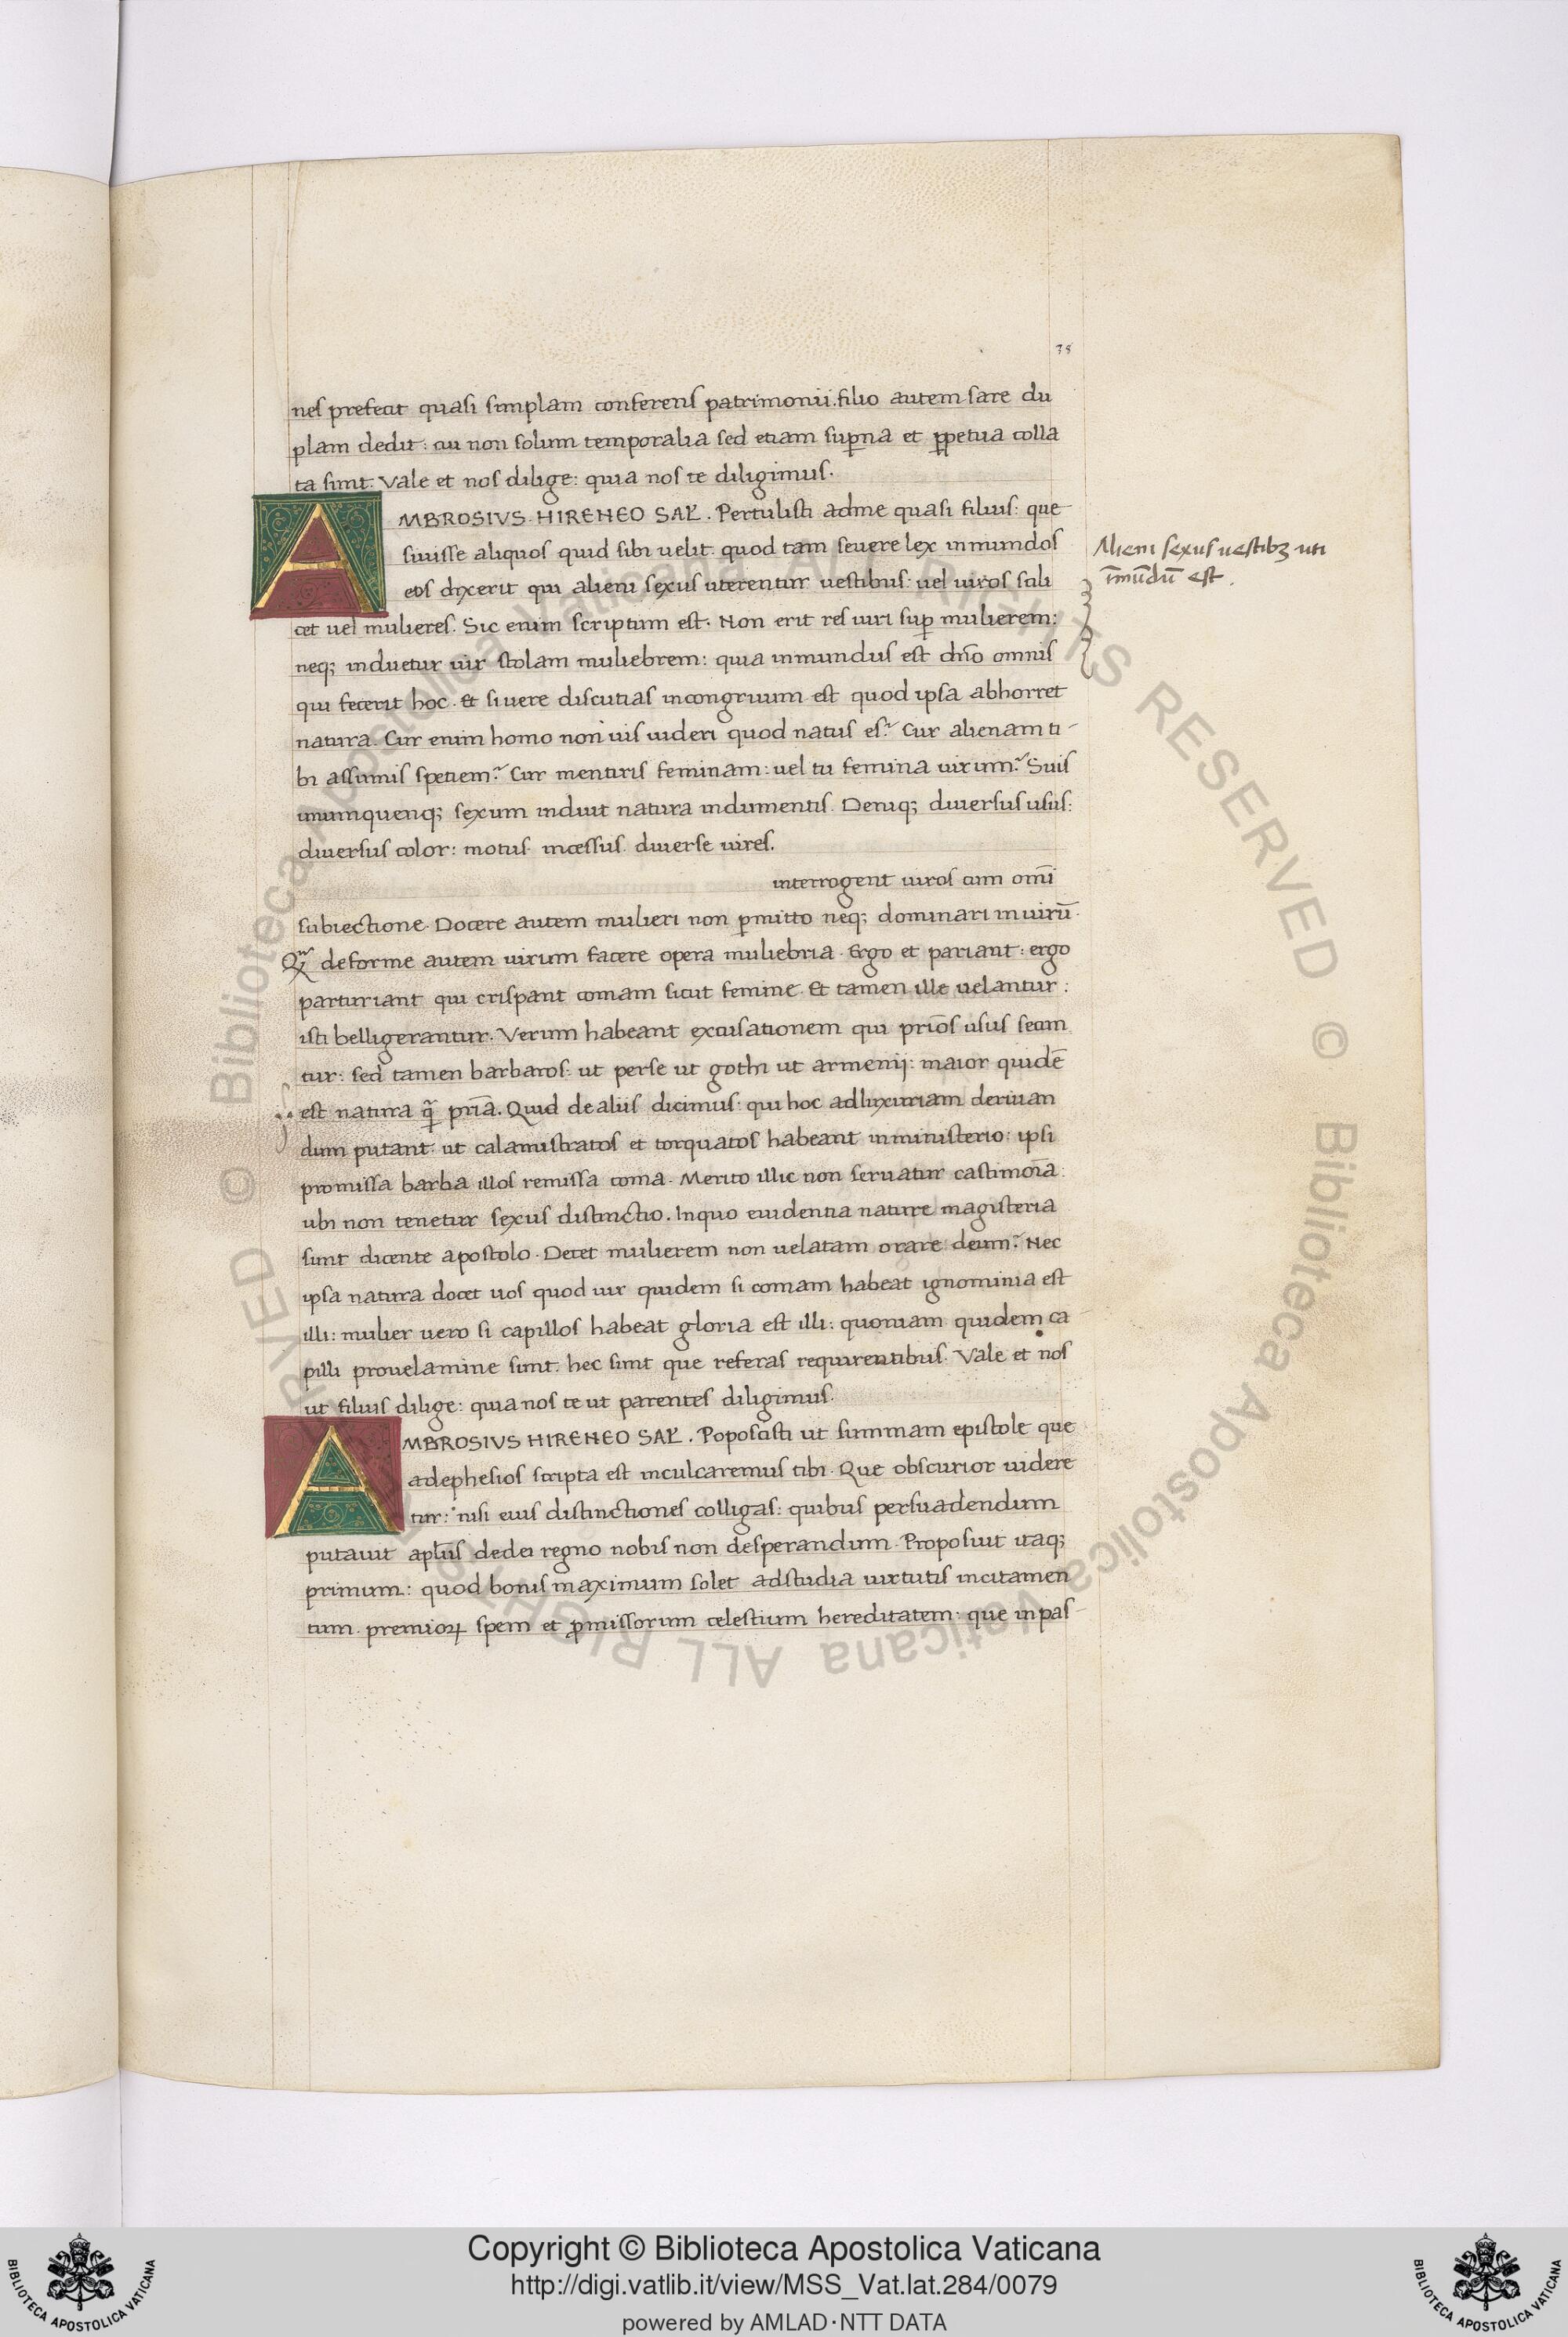 75
nes prefecit quasi simplam conferens patrimonii. filio autem sare du
plam dedit: cui non solum temporalia sed etiam sup̲na et p̲petua colla
ta sunt. Vale et nos dilige: quia nos te diligimus.
AMBROSIVS HIRENEO SAL̄. Pertulisti adme quasi filius: que
siuisse aliquos quid sibi uelit quod tam seuere lex inmundos
eos dixerit qui alieni sexus uterentur uestibus: uel uiros scili
cet uel mulieres. Sic enim scriptum est. Non erit res uiri sup̲ mulierem:
neq; induetur uir stolam muliebrem: quia inmundus est dn̄o omnis
qui fecerit hoc. Et si uere discutias incongruum est quod ipsa abhorret
natura. Cur enim homo non uis uideri quod natus es? Cur alienam ti
bi assumis spetiem? Cur mentiris feminam: uel tu femina uirum? Suis
unumquenq; sexum induit natura indumentis. Deniq; diuersus usus:
diuersus color: motus incessus diuerse uires.
interrogent uiros cum omī
subiectione. Docere autem mulieri non p̲mitto neq; dominari in uirū.
deforme autem uirum facere opera muliebria. Ergo et pariant: ergo
parturiant qui crispant comam sicut femine. Et tamen ille uelantur:
isti belligerantur. Verum habeant excusationem qui prios usus secun
tur: sed tamen barbaros: ut perse ut gothi ut armenij: maior quidē
est natura q̄ pr̄ia. Quid de aliis dicimus: qui hoc adluxuriam deriuan
dum putant: ut calamistratos et torquatos habeant inministerio: ipsi
promissa barba illos remissa coma. Merito illic non seruatur castimoīa:
ubi non tenetur sexus distinctio. Inquo euidentia nature magisteria
sunt dicente apostolo. Decet mulierem non uelatam orare deum? Nec
ipsa natura docet uos quod uir quidem si comam habeat ignominia est
illi: mulier uero si capillos habeat gloria est illi: quoniam quidem ca
pilli prouelamine sunt. hec sunt que referas requirentibus. Vale et nos
ut filius dilige: quia nos te ut parentes diligimus.
AMBROSIVS HIRENEO SAL̄. Poposcisti ut summam epistole que
adephesios scripta est inculcaremus tibi. Que obscurior uidere
tur: nisi eius distinctiones colligas: quibus persuadendum
putauit apl̄us dedei regno nobis non desperandum. Proposuit itaq;
primum: quod bonis maximum solet adstudia uirtutis incitamen
tum. premioꝝ spem et p̄missorum celestium hereditatem: que inpas
Alieni sexus uestibꝫ uti
īmūdū est.
© Biblioteca Apostolica Vaticana ALL RIGHTS RESERVED © Biblioteca Apostolica Vaticana ALL RIGHTS RESERVED
BIBLIOTECA APOSTOLICA VATICANA
Copyright © Biblioteca Apostolica Vaticana
http://digi.vatlib.it/view/MSS_Vat.lat.284/0079
powered by AMLAD·NTT DATA
BIBLIOTECA APOSTOLICA VATICANA